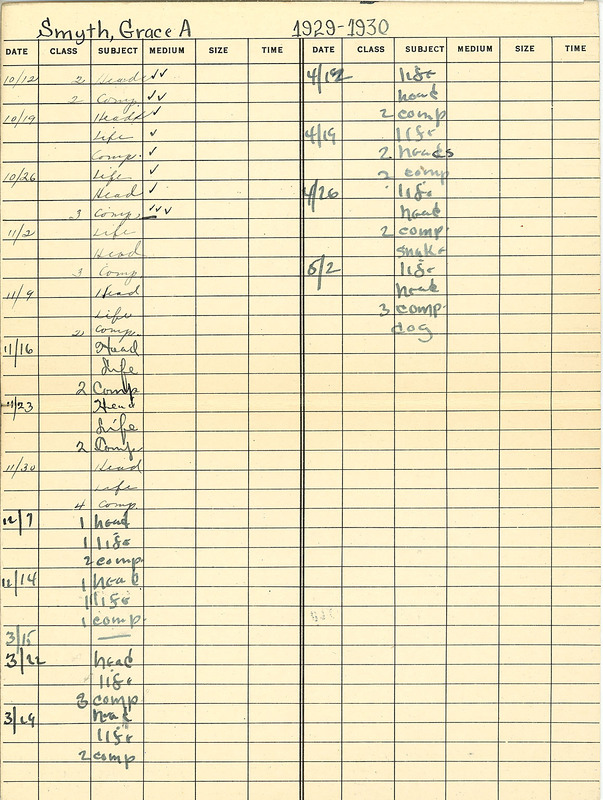 Smyth, Grace A 1929-1930
DATE CLASS SUBJECT MEDIUM SIZE TIME DATE CLASS SUBJECT MEDIUM SIZE TIME
10/12 2 Heads ✓✓
2 Comp ✓✓
10/19 Heads ✓
Life ✓
Comp. ✓
10/26 Life ✓
Head ✓
3 Comp. ✓✓✓
11/2 Life
Head
3 Comp
11/9 Head
Life
2 Comp.
11/16 Head
Life
2 Comp
11/23 Head
Life
2 Comp.
11/30 Head
Life
4 Comp.
12/7 1 head
1 life
2 comp.
12/14 1 head
1 life
1 comp.
3/15 —
3/22 head
life
3 comp.
3/29 head
life
2 comp
4/12 life
head
2 comp
4/19 life
2 heads
2 comp
4/26 life
head
2 comp.
snake
5/2 life
head
3 comp.
dog